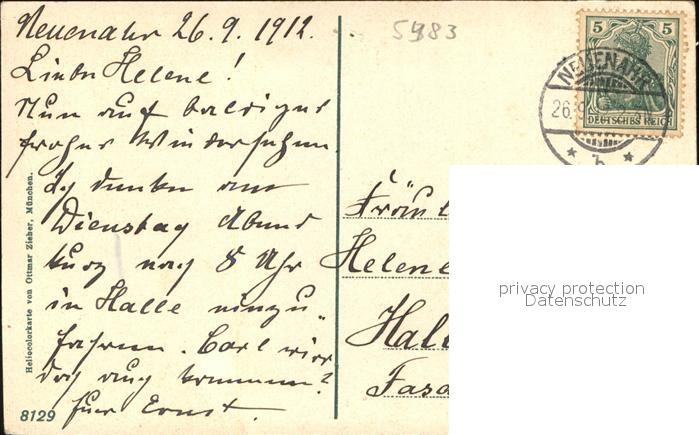 Neuenahr 26.9.1912.
5983
Liebe Helene!
Nun auf baldiges
frohes Wiedersehen
Ich denke am
Dienstag Abend
kurz nach 8 Uhr
in Halle einzu-
fahren. Carl wird
doch auch kommen?
Dein Ernst.
5 5
DEUTSCHES REICH
NEUENAHR
26.9
* b *
Fräul
Helene
Hall
Fasa
privacy protection
Datenschutz
Heliocolorkarte von Ottmar Zieher, München.
8129